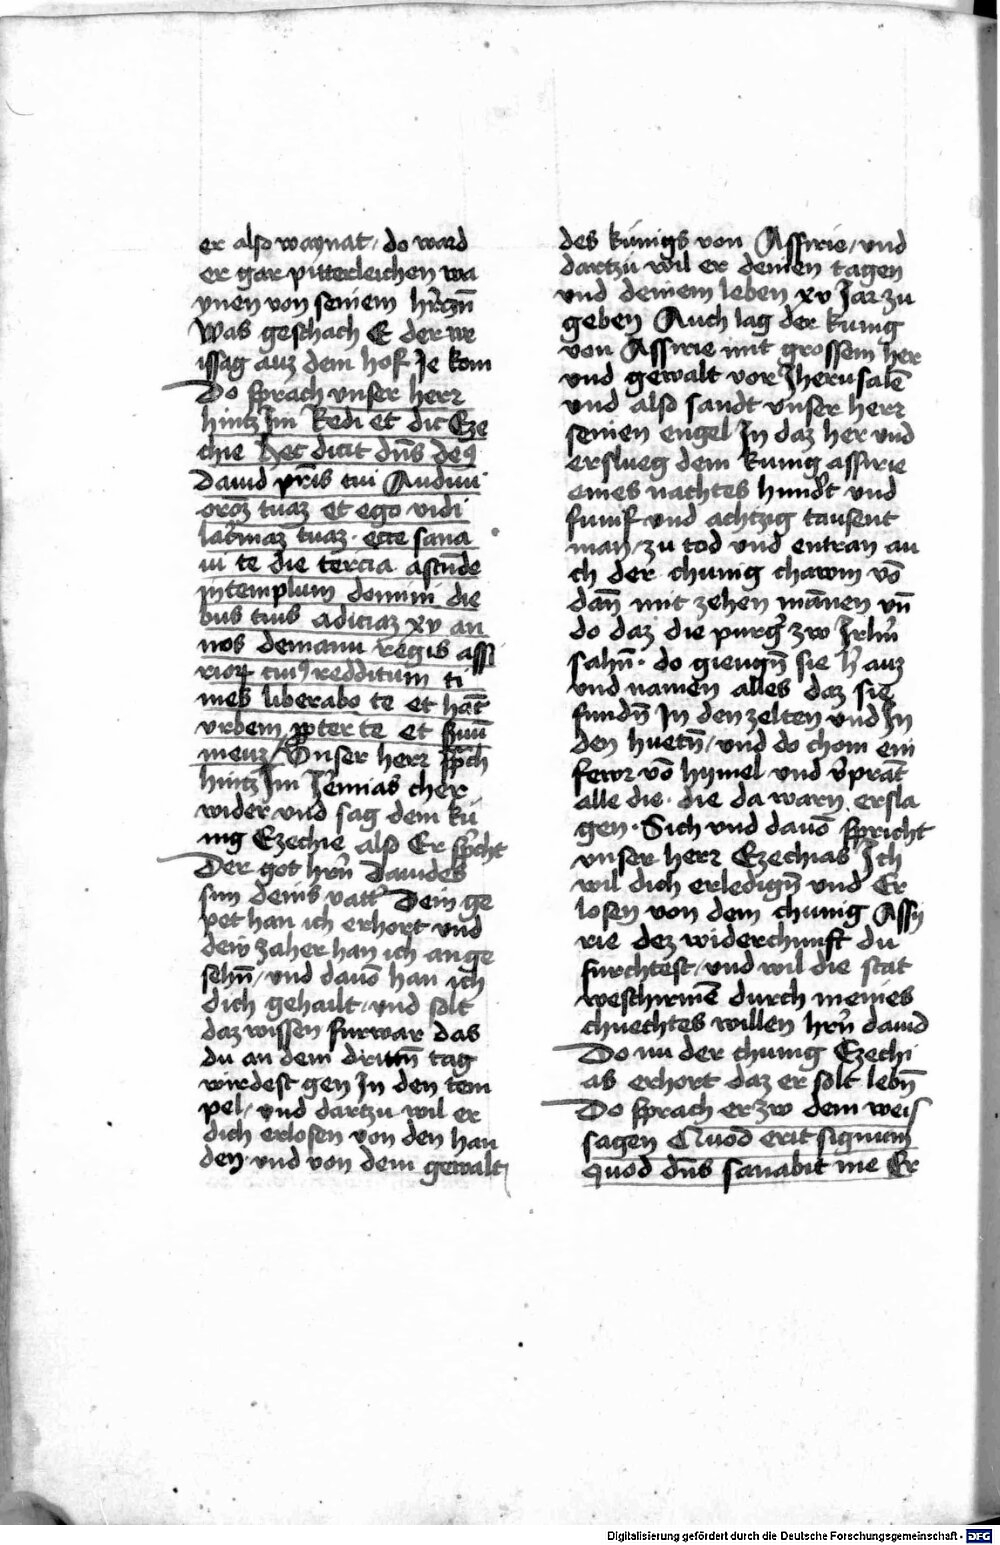 er also waynat / do ward
er gar pitterleichen wa
ynen von seinem hr̄czn̄
Was geschach E der we
issag auz dem hof Je kom
Do sprach vnser herr
hincz Jm Redi et dic Eze
chie hec dicit dn̄s deꝯ
Dauid pr̄is tui Audiui
oroēz tuaz et ego vidi
lac̄rmaz tuaz · ecce sana
ui te die tercia ascēnde
in templum domini die
bus tuis adiciaz xv an
nos de manu regis assi
rioꝝ cuiꝯ redditum ti
mes liberabo te et hāc
vrbem ꝓpter te et s̄uū
meuz / Vnser herr sp̄ch
hincz Jm Jerēmias cher
wider vnd sag dem kü
nig Ezechie also Er sp̄cht
Der got hr̄n Dauides
sun deins vatt̄ Dein ge
pet han ich erhort vnd
dein zaher han ich ange
sehn̄ / vnd dauō han ich
dich gehailt / vnd solt
daz wissen furwar das
du an dem dritn̄ tag
wirdest gen Jn den tem
pel / vnd dartzu wil er
dich erlosen von den han
den · vnd von dem gewalt
des künigs von Assirie / vnd
dartzu wil er deinen tagen
vnd deinem leben xv Jar zu
geben Auch lag der kunig
von Assirie mit grossem her
vnd gewalt vor Jherusalē
vnd also sandt vnser herr
seinen engel Jn daz her vnd
erslueg dem kunig assirie
eines nachtes hund̄t vnd
funif vnd achtzig tausent
man / zu tod vnd entran au
ch der chunig chawm vō
dan̄ mit zehen mānen vn̄
do daz die purḡ zw Jrlm̄
sahn̄ · do giengn̄ sie h̄ auz
vnd namen alles daz sie
fundn̄ Jn den zelten vnd Jn
den huetn̄ / vnd do chom ein
fewr vō hymel vnd v̄prāt
alle die · die da warn ersla
gen · Sich vnd dauō spricht
vnser herr Ezechias Jch
wil dich erledign̄ vnd Er
losen von dem chunig Assy
rie dez widerchunft du
furchtest / vnd wil die stat
weschirmē durch meines
chnechtes willen hr̄n dauid
Do nu der chunig Ezechi
as erhort daz er solt lebn̄
Do sprach er zw dem weis
sagen Quod erit signum
quod dn̄s sanabit me Er
Digitalisierung gefördert durch die Deutsche Forschungsgemeinschaft - DFG